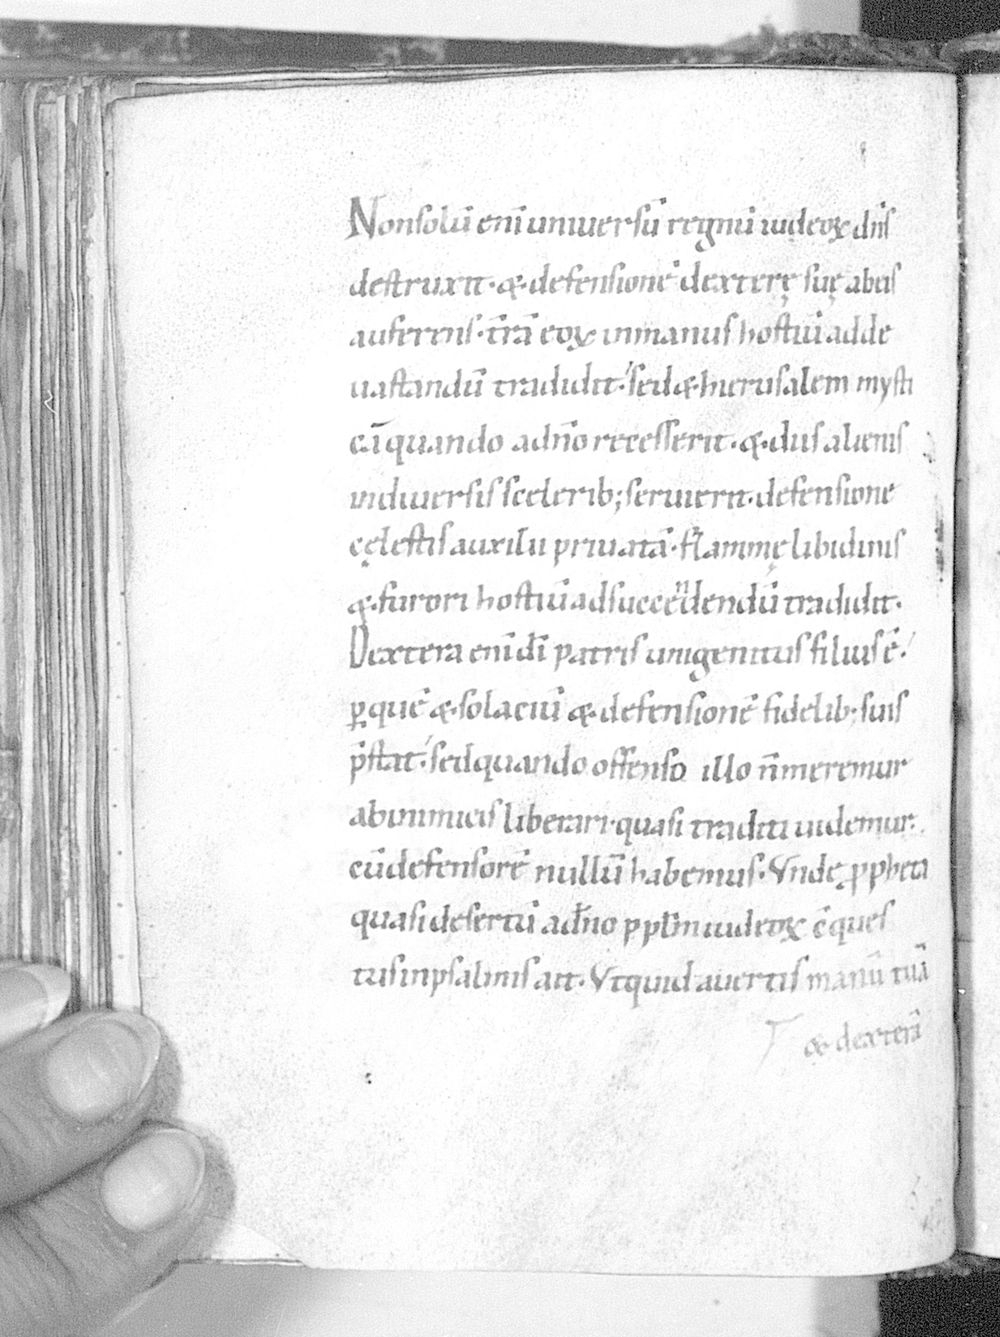 Nonsolū enī uniuersū regnū iudeoꝝ dn̄s
destruxit· & defensionē dexterę suę abeis
auferens· t̄rā eoꝝ inmanus hostiū adde
uastandū tradidit· sed & hierusalem mysti
cā quando adn̄o recesserit· & diis alienis
indiuersis scelerib; seruierit· defensione
cęlestis auxilii priuatā· flammę libidinis
& furori hostiū adsuccendendū tradidit·
Dextera enī dī patris unigenitus filius ē·
ꝑ quē & solaciū & defensionē fidelib; suis
p̄stat· sed quando offenso illo n̄ meremur
abinimicis liberari· quasi traditi uidemur·
cū defensorē nullū habemus· Vnde ꝓpheta
quasi desertū ad̄no pplm̄ iudeoꝝ c̄ques
tus inpsalmis ait· Vtquid auertis manū tuā
& dexterā